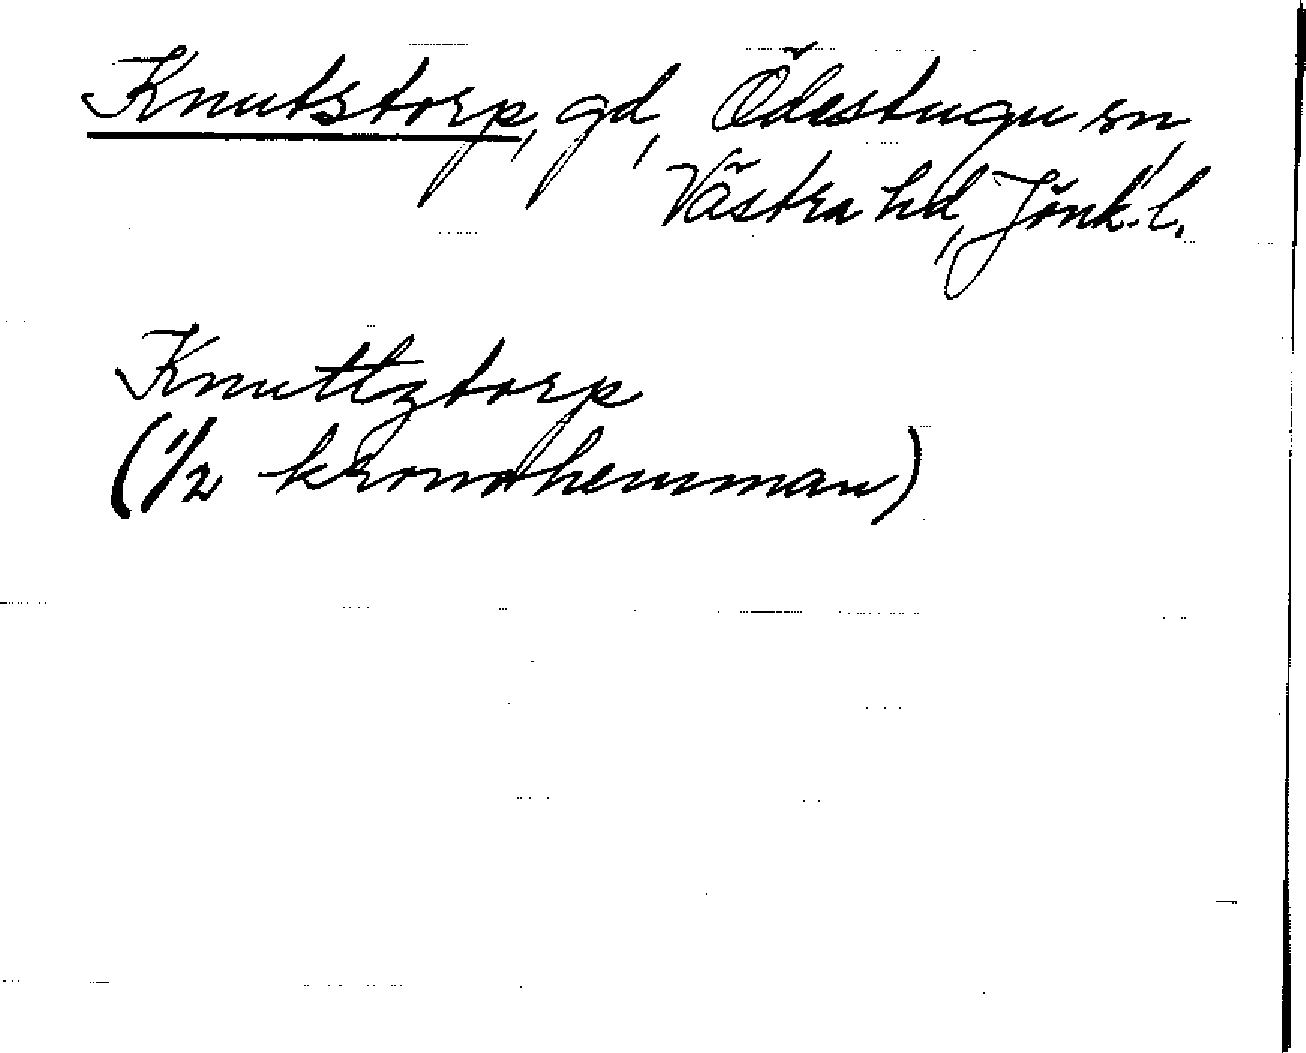 Knutstorp, gd, Ödestugu sn,
Västra hd, Jönk. l.
Knuttztorp
(1/2 kronohemman)